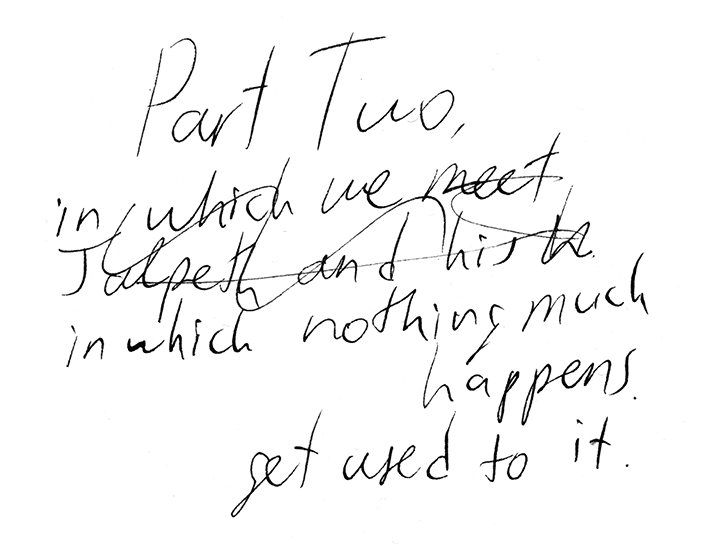 Part Two,
in which we meet
and his
in which nothing much
happens.
get used to it.